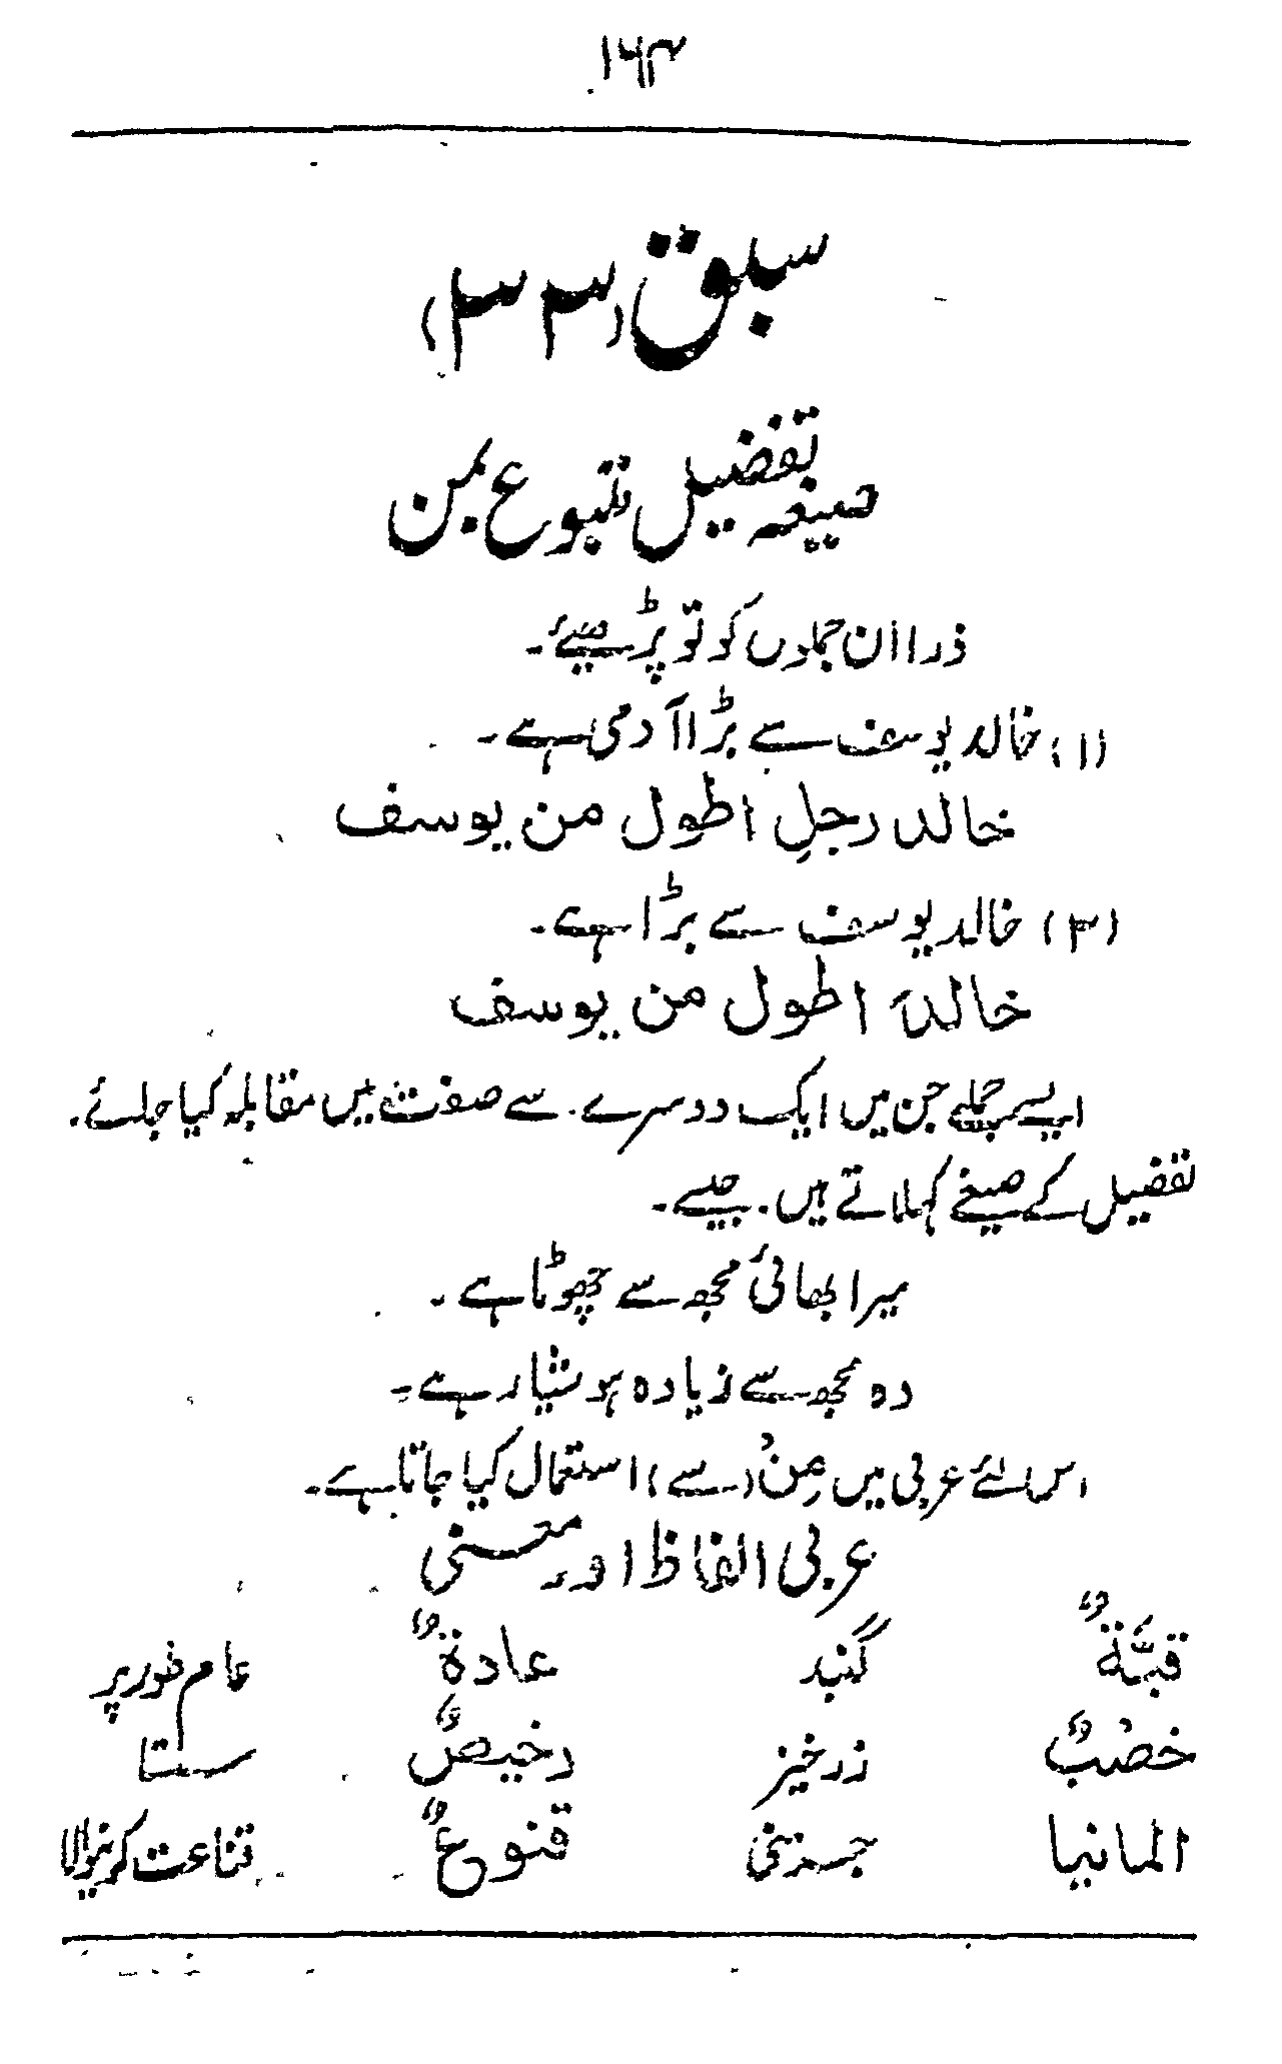 ۱۶۳
سبق (۳۳)
صیغہ تفضیل متبوع بمن
ذرا ان جملوں کو تو پڑھیئے۔
(۱) خالد یوسف سے بڑا آدمی ہے۔
خالد رجلٍ اطول من یوسف
(۲) خالد یوسف سے بڑا ہے۔
خالدٌ اطول من یوسف
ایسے جملے جن میں ایک دوسرے۔ سے صفت میں مقابلہ کیا جائے۔
تفضیل کے صیغے کہلاتے ہیں۔ جیسے۔
میرا بھائی مجھ سے چھوٹا ہے۔
وہ مجھ سے زیادہ ہوشیار ہے۔
اس لئے عربی میں مِنْ (سے) استعمال کیا جاتا ہے۔
عربی الفاظ اور معنی
قبَّةٌ گنبد عادةٌ عام طور پر
خصْبٌ زرخیز رخیصٌ سستا
المانیا جرمنی قنوعٌ قناعت کرنیوالا